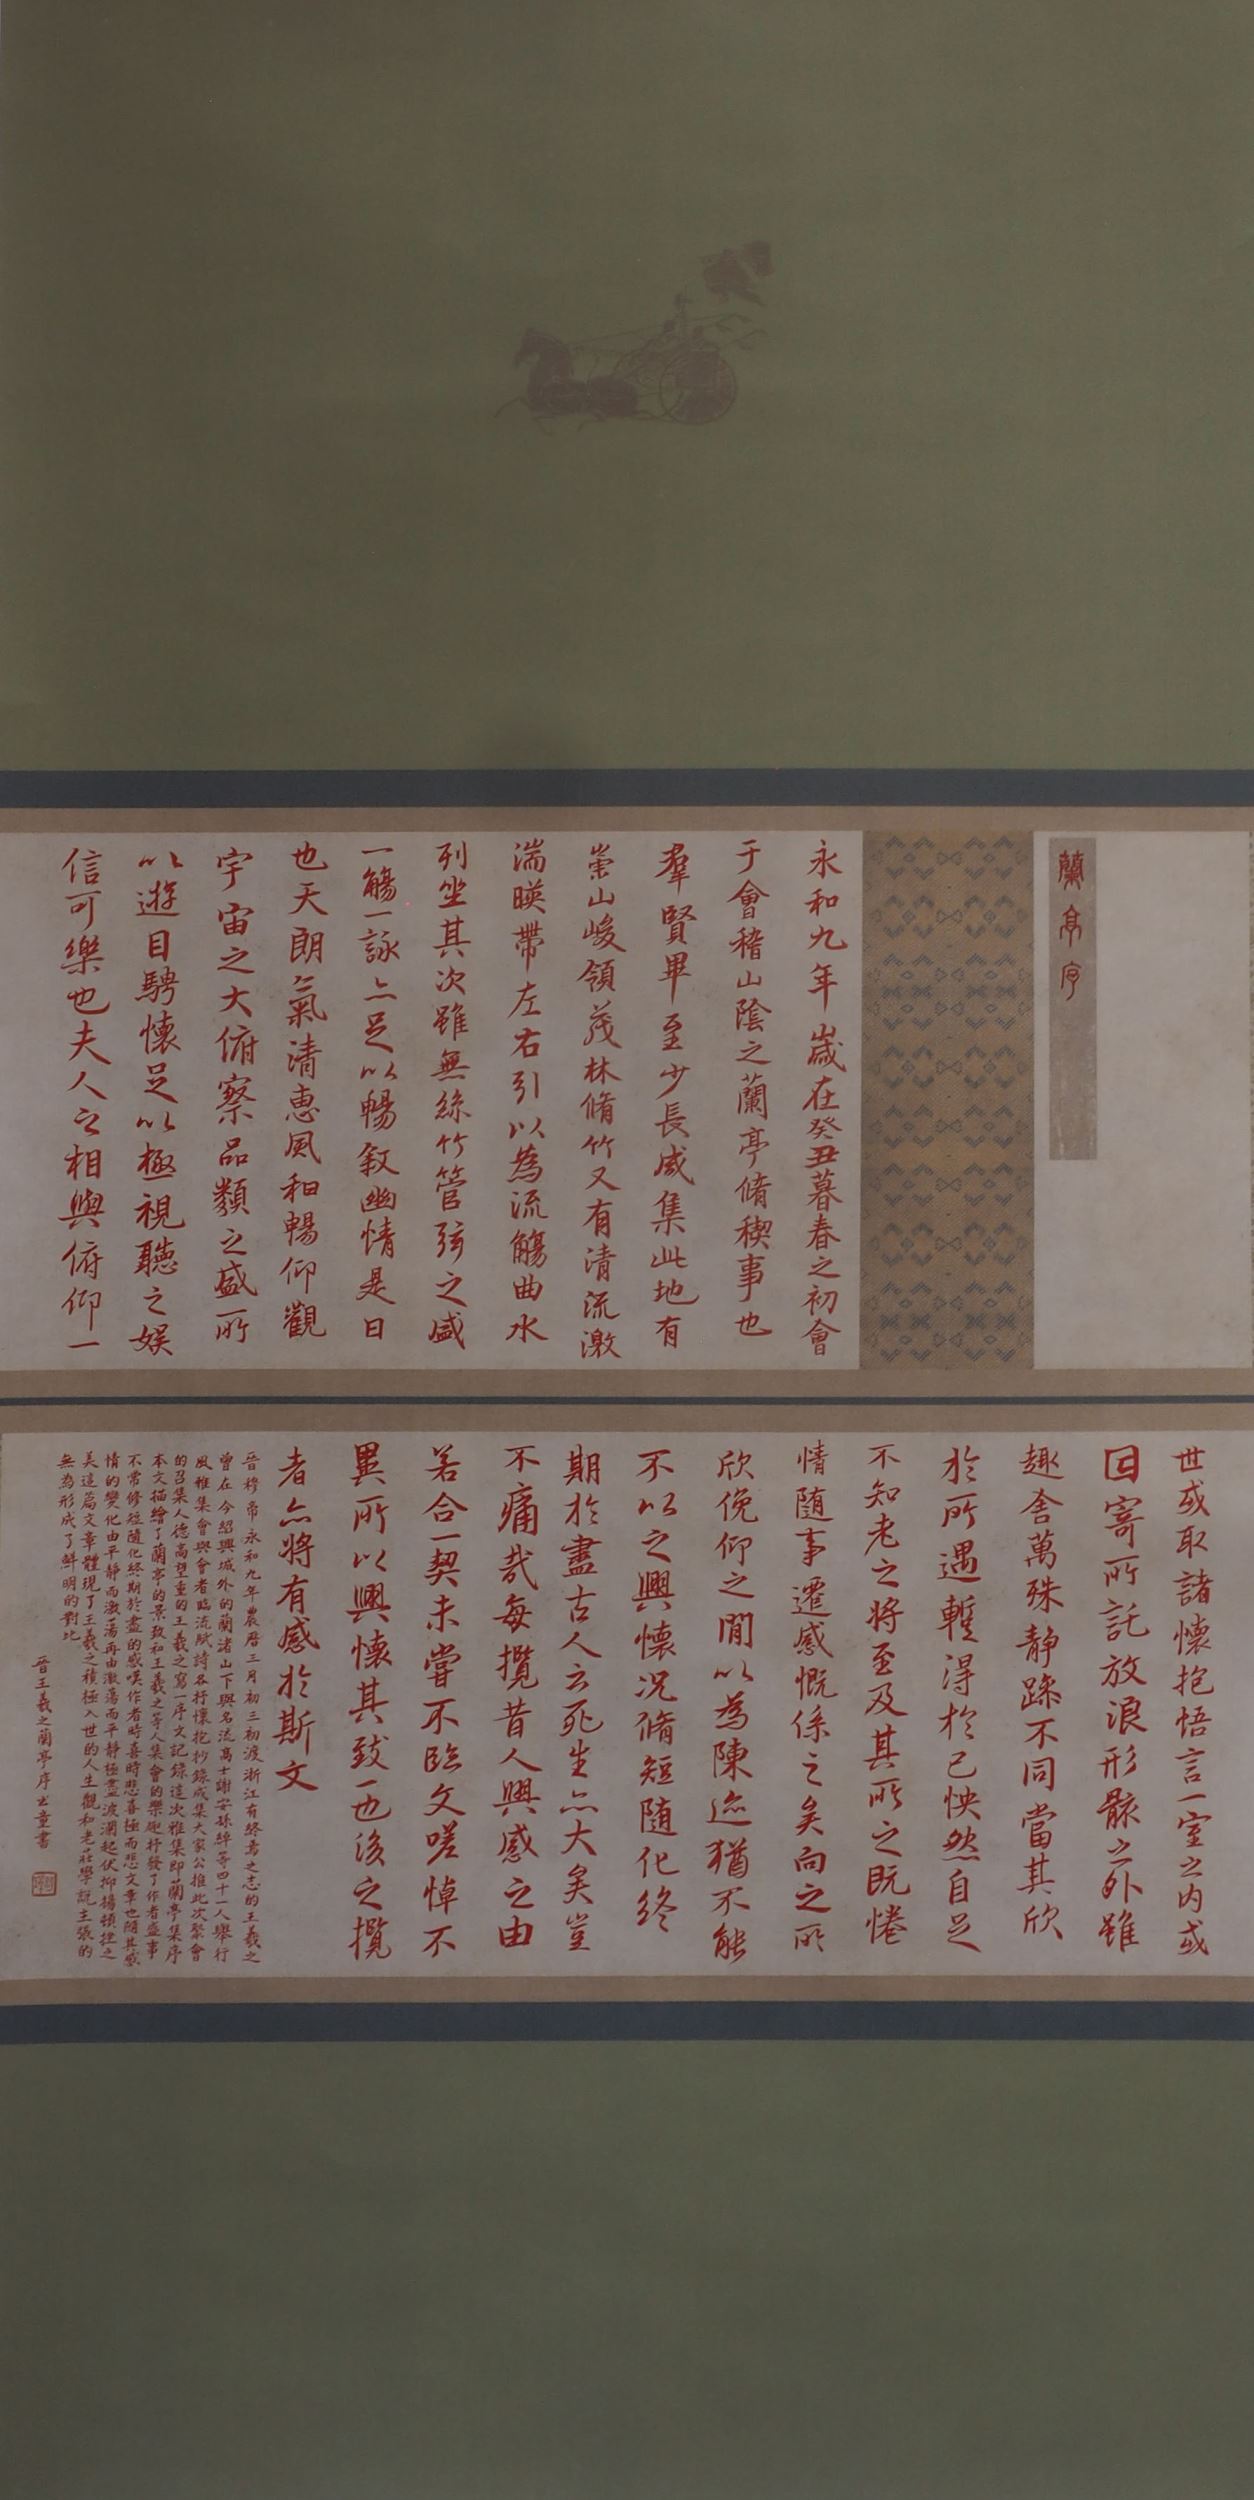 蘭亭序
永和九年歲在癸丑暮春之初會
于會稽山陰之蘭亭脩稧事也
羣賢畢至少長咸集此地有
崇山峻領茂林脩竹又有清流激
湍暎帶左右引以為流觴曲水
列坐其次雖無絲竹管弦之盛
一觴一詠亦足以暢敘幽情是日
也天朗氣清惠風和暢仰觀
宇宙之大俯察品類之盛所
以遊目騁懷足以極視聽之娛
信可樂也夫人之相與俯仰一
世或取諸懷抱悟言一室之內或
因寄所託放浪形骸之外雖
趣舍萬殊靜躁不同當其欣
於所遇蹔得於己怏然自足
不知老之將至及其所之既惓
情隨事遷感慨係之矣向之所
欣俛仰之閒以為陳迹猶不能
不以之興懷況脩短隨化終
期於盡古人云死生亦大矣豈
不痛哉每攬昔人興感之由
若合一契未嘗不臨文嗟悼不
異所以興懷其致一也後之攬
者亦將有感於斯文
晉穆帝永和九年農曆三月初三初渡浙江有終焉之志的王羲之
曾在今紹興城外的蘭渚山下與名流高士謝安孫綽等四十一人舉行
風雅集會與會者臨流賦詩各抒懷抱抄錄成集大家公推此次聚會
的召集人德高望重的王羲之寫一序文記錄這次雅集即蘭亭集序
本文描繪了蘭亭的景致和王羲之等人集會的樂趣抒發了作者盛事
不常修短隨化終期於盡的感嘆作者時喜時悲喜極而悲文章也隨其感
情的變化由平靜而激蕩再由激蕩而平靜極盡波瀾起伏抑揚頓挫之
美這篇文章體現了王羲之積極入世的人生觀和老莊學說主張的
無為形成了鮮明的對比
晉王羲之蘭亭序 童書